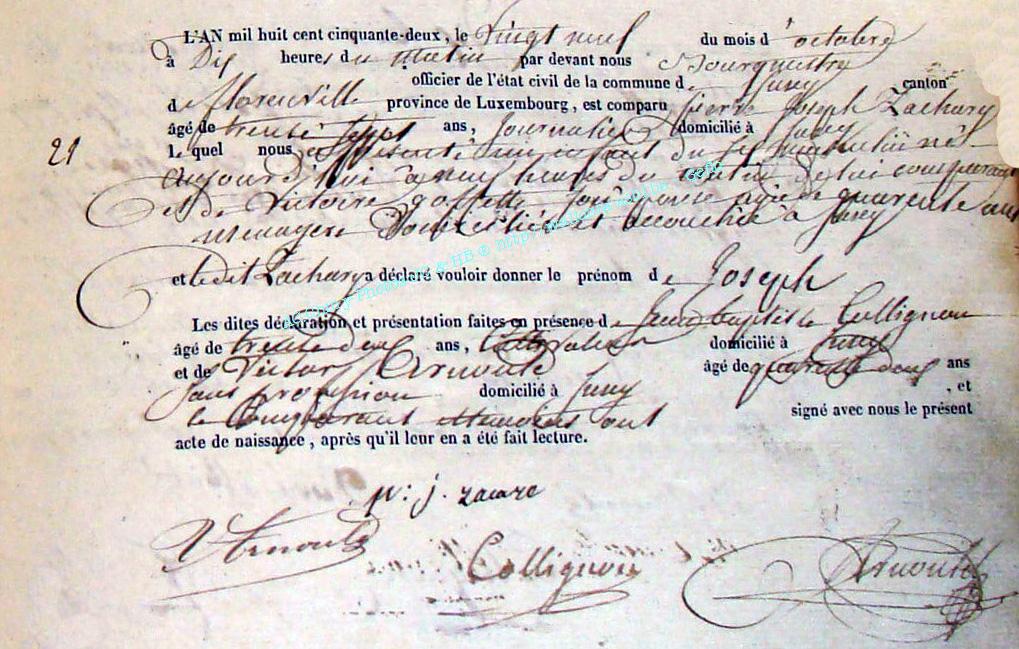 L'AN mil huit cent cinquante-deux, le Vingt neuf du mois d' octobre
à Dix heures du matin par devant nous Bourguestre
officier de l'état civil de la commune de Juvy canton
de florenville province de Luxembourg, est comparu pierre Joseph Zachary
âgé de trente sept ans, Journalier domicilié à Juvy
21
Lequel nous a présenté un enfant du sexe masculin né
aujourd'hui à neuf heures du matin de lui comparant
et de Victoire goffette son épouse agée de quarente ans
menagere Domiciliée et accouchée à Juvy
et ledit Zachary a déclaré vouloir donner le prénom de Joseph
Les dites déclaration et présentation faites en présence de Jean baptiste Collignon
âgé de trente deux ans, domicilié à Juvy
et de Victor Arnould âgé de quarante deux ans
sans profession domicilié à Juvy , et
le Comparant et temoins ont signé avec nous le présent
acte de naissance, après qu'il leur en a été fait lecture.
p: j. zacare
V Arnould Collignon Arnould